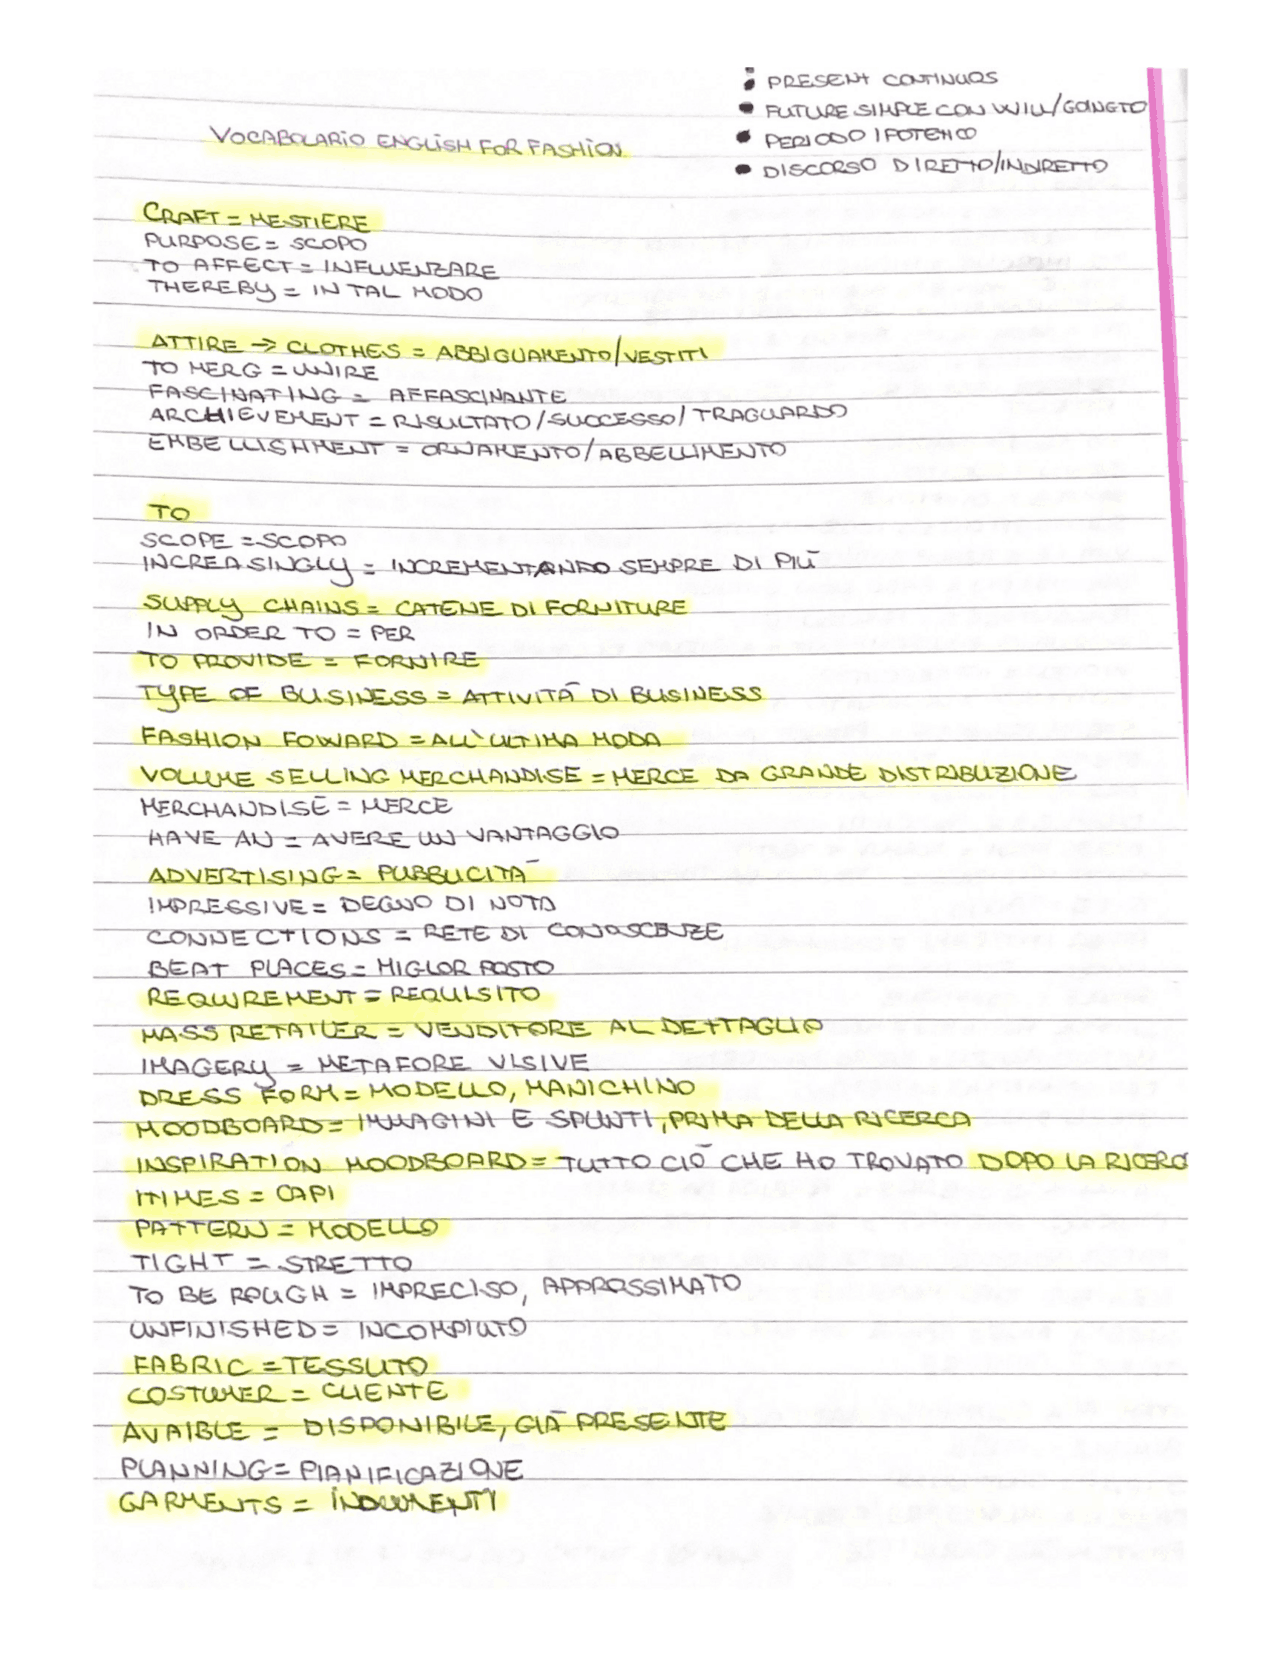 PRESENT CONTINUOS
FUTURE SIMPLE CON WILL/GOINGTO
PERIODO IPOTETICO
DISCORSO DIRETTO/INDIRETTO
VOCABOLARIO ENGLISH FOR FASHION
CRAFT = MESTIERE
PURPOSE = SCOPO
TO AFFECT = INFLUENZARE
THEREBY = IN TAL MODO
ATTIRE → CLOTHES = ABBIGLIAMENTO/VESTITI
TO MERG = UNIRE
FASCINATING = AFFASCINANTE
ARCHIEVEMENT = RISULTATO/SUCCESSO/TRAGUARDO
EMBELLISHMENT = ORNAMENTO/ABBELLIMENTO
TO
SCOPE = SCOPO
INCREASINGLY = INCREMENTANDO SEMPRE DI PIÙ
SUPPLY CHAINS = CATENE DI FORNITURE
IN ORDER TO = PER
TO PROVIDE = FORNIRE
TYPE OF BUSINESS = ATTIVITÀ DI BUSINESS
FASHION FOWARD = ALL'ULTIMA MODA
VOLUME SELLING MERCHANDISE = MERCE DA GRANDE DISTRIBUZIONE
MERCHANDISE = MERCE
HAVE AN = AVERE UN VANTAGGIO
ADVERTISING = PUBBLICITÀ
IMPRESSIVE = DEGNO DI NOTA
CONNECTIONS = RETE DI CONOSCENZE
BEAT PLACES = MIGLIOR POSTO
REQUIREMENT = REQUISITO
MASS RETAILER = VENDITORE AL DETTAGLIO
IMAGERY = METAFORE VISIVE
DRESS FORM = MODELLO, MANICHINO
MOODBOARD = IMMAGINI E SPUNTI, PRIMA DELLA RICERCA
INSPIRATION MOODBOARD = TUTTO CIÒ CHE HO TROVATO DOPO LA RICERC
ITIMES = CAPI
PATTERN = MODELLO
TIGHT = STRETTO
TO BE ROUGH = IMPRECISO, APPROSSIMATO
UNFINISHED = INCOMPIUTO
FABRIC = TESSUTO
COSTUMER = CLIENTE
AVAIBLE = DISPONIBILE, GIÀ PRESENTE
PLANNING = PIANIFICAZIONE
GARMENTS = INDUMENTI